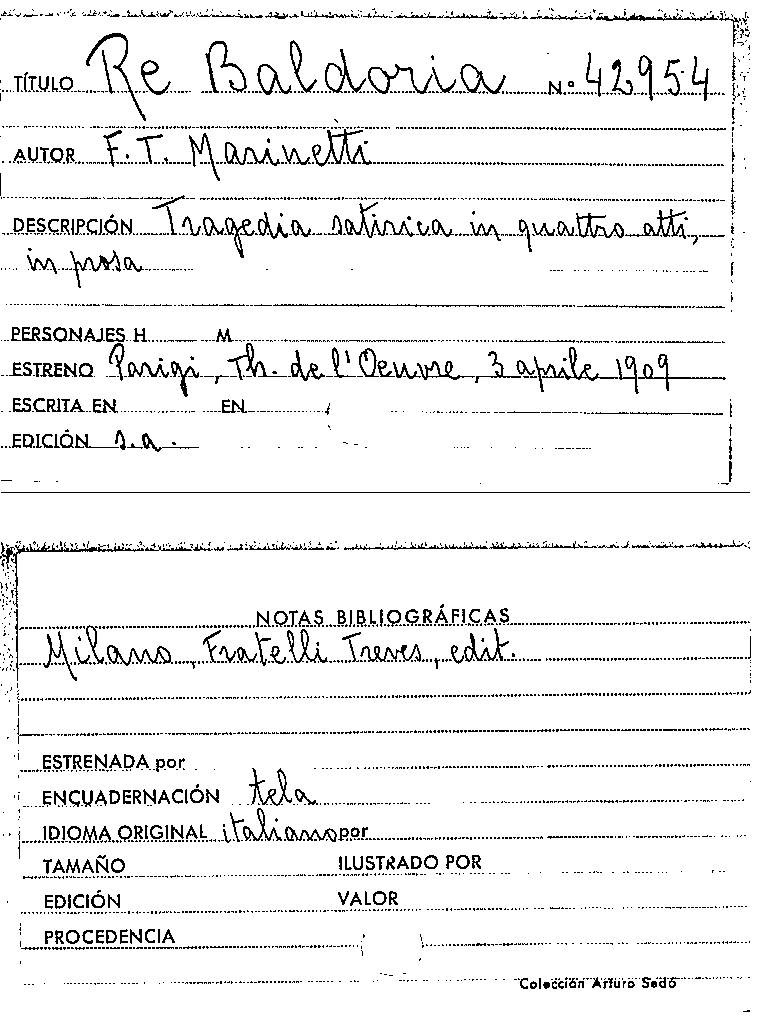 TÍTULO Re Baldoria N.° 42.954
AUTOR F. T. Marinetti
DESCRIPCIÓN Tragedia satirica in quattro atti,
in prosa
PERSONAJES H M
ESTRENO Parigi, Th. de l'Oeuvre, 3 aprile 1909
ESCRITA EN EN
EDICIÓN s.a.
NOTAS BIBLIOGRÁFICAS
Milano, Fratelli Treves, edit.
ESTRENADA por
ENCUADERNACIÓN tela
IDIOMA ORIGINAL italiano por
TAMAÑO ILUSTRADO POR
EDICIÓN VALOR
PROCEDENCIA
Colección Arturo Sedó